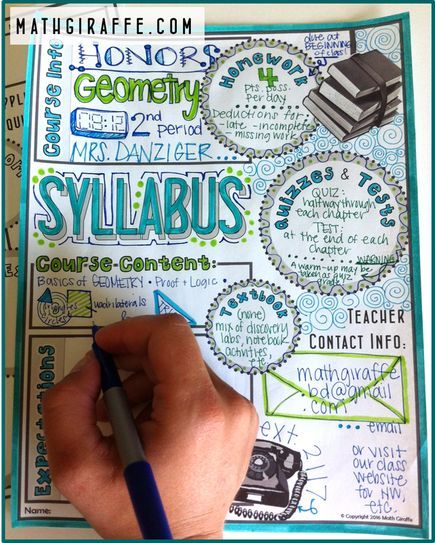 MATHGIRAFFE.COM
Course Info
HONORS
Geometry
08:12
2nd
period
MRS. DANZIGER....
due at
BEGINNING
of class!
Homework
4
Pts. poss.
per day
Deductions for
-late -incomplete
missing work
SYLLABUS
Quizzes & Tests
QUIZ:
halfway through
each chapter
TEST:
at the end of each
Chapter
WARNING!
A warm-up may be
taken as quiz
grade!
Course Content:
Basics of GEOMETRY • Proof + Logic
Quadrilaterals
Textbook
(none)
mix of discovery
labs, notebook
activities,
etc.
Teacher
Contact Info:
mathgiraffe
.bd@gmail
.com
... email
Expectations
ext
217
or visit
our class
website
for HW,
etc.
Name:
© Copyright 2016 Math Giraffe